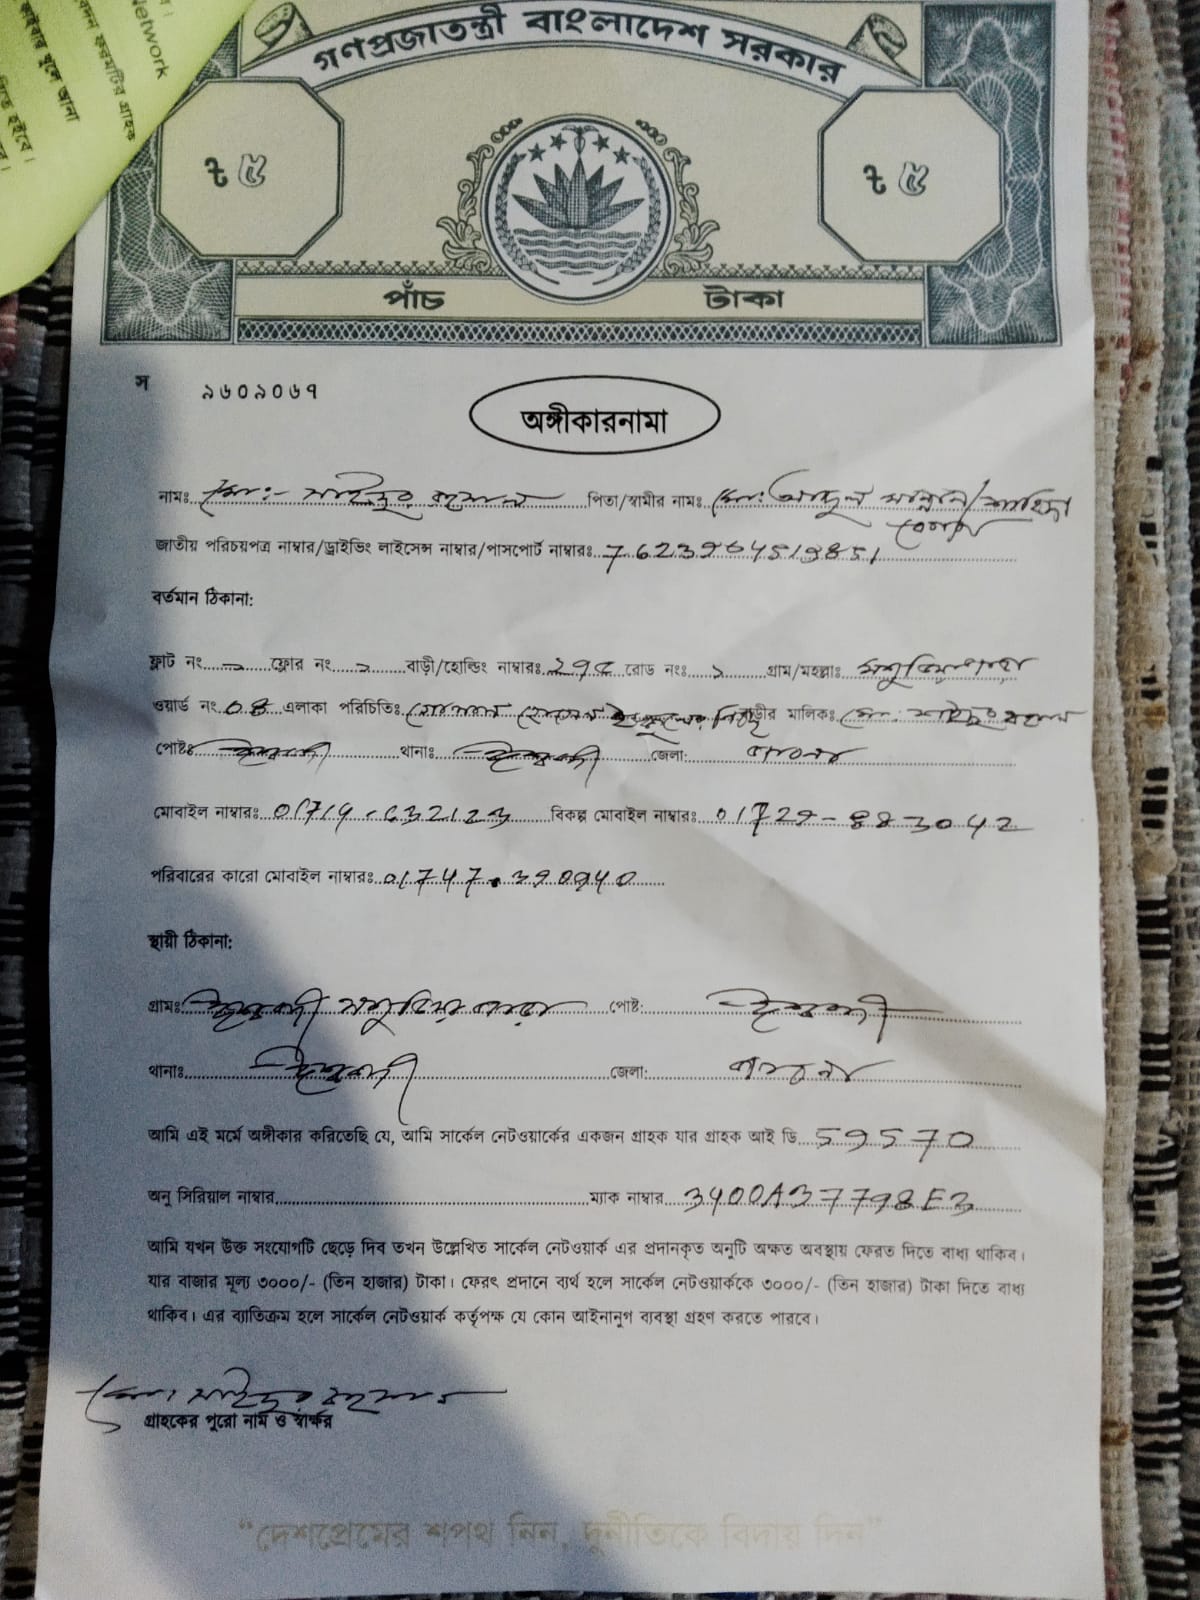 Network
গণপ্রজাতন্ত্রী বাংলাদেশ সরকার
৳ ৫ ৳ ৫
পাঁচ টাকা
স ৯৬০৯০৬৭
অঙ্গীকারনামা
নামঃ মোঃ- সাইদুর রহমান পিতা/স্বামীর নামঃ মোঃ আব্দুল মান্নান/শাহিদা
বেগম
জাতীয় পরিচয়পত্র নাম্বার/ড্রাইভিং লাইসেন্স নাম্বার/পাসপোর্ট নাম্বারঃ
বর্তমান ঠিকানা:
ফ্লাট নং ফ্লোর নং বাড়ী/হোল্ডিং নাম্বারঃ রোড নংঃ গ্রাম/মহল্লাঃ
ওয়ার্ড নং 04 এলাকা পরিচিতিঃ বাড়ীর মালিকঃ মোঃ সাইদুর রহমান
পোষ্টঃ ঈশ্বরদী থানাঃ ঈশ্বরদী জেলা: পাবনা
মোবাইল নাম্বারঃ বিকল্প মোবাইল নাম্বারঃ
পরিবারের কারো মোবাইল নাম্বারঃ
স্থায়ী ঠিকানা:
গ্রামঃ ঈশ্বরদী পোষ্ট: ঈশ্বরদী
থানাঃ ঈশ্বরদী জেলা: পাবনা
আমি এই মর্মে অঙ্গীকার করিতেছি যে, আমি সার্কেল নেটওয়ার্কের একজন গ্রাহক যার গ্রাহক আই ডি 59570
অনু সিরিয়াল নাম্বার ম্যাক নাম্বার 3400A37798E3
আমি যখন উক্ত সংযোগটি ছেড়ে দিব তখন উল্লেখিত সার্কেল নেটওয়ার্ক এর প্রদানকৃত অনুটি অক্ষত অবস্থায় ফেরত দিতে বাধ্য থাকিব।
যার বাজার মূল্য ৩০০০/- (তিন হাজার) টাকা। ফেরৎ প্রদানে ব্যর্থ হলে সার্কেল নেটওয়ার্ককে ৩০০০/- (তিন হাজার) টাকা দিতে বাধ্য
থাকিব। এর ব্যাতিক্রম হলে সার্কেল নেটওয়ার্ক কর্তৃপক্ষ যে কোন আইনানুগ ব্যবস্থা গ্রহণ করতে পারবে।
মোঃ সাইদুর রহমান
গ্রাহকের পুরো নাম ও স্বার্ক্ষর
"দেশপ্রেমের শপথ নিন, দুর্নীতিকে বিদায় দিন"